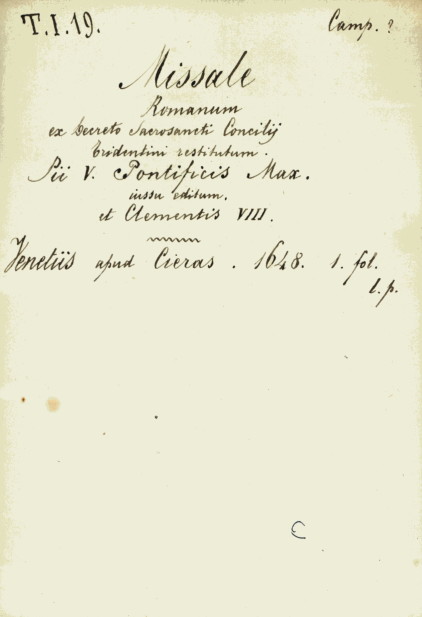 T.I.19. Camp. ?
Missale
Romanum
ex Decreto Sacrosancti Concilij
Tridentini restitutum.
Pii V. Pontificis Max.
iussu editum.
et Clementis VIII.
Venetiis apud Cieras. 1648. 1. fol.
l. p.